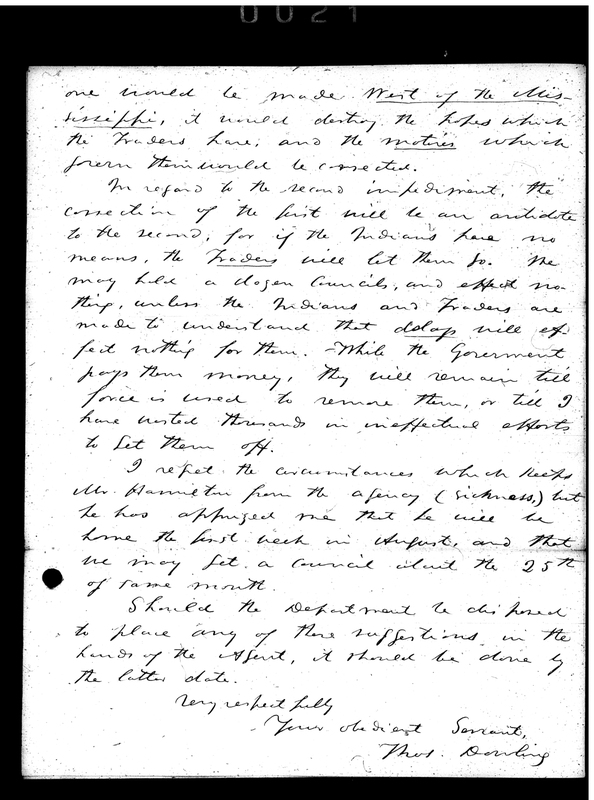 0021
one would be made West of the Mis-
sissippi, it would destroy the hopes which
the Traders have; and the motives which
govern them would be corrected.
In regard to the second impediment, the
correction of the first will be an antidote
to the second, for if the Indians have no
means, the Traders will let them go. We
may hold a dozen Councils, and effect no-
thing, unless the Indians and Traders are
made to understand that delays will ef
fect nothing for them. – While the Goverment
pays them money, they will remain till
force is used to remove them, or till I
have wasted thousands in ineffectual efforts
to get them off.
I regret the circumstances which keeps
Mr. Hamilton from the agency (sickness,) but
he has apprized me that he will be
home the first week in August, and that
we may get a council about the 25th
of same month.
Should the Department be disposed
to place any of these suggestions in the
hands of the Agent, it should be done by
the latter date.
Very respectfully
Your obedient Servant,
Thos. Dowling